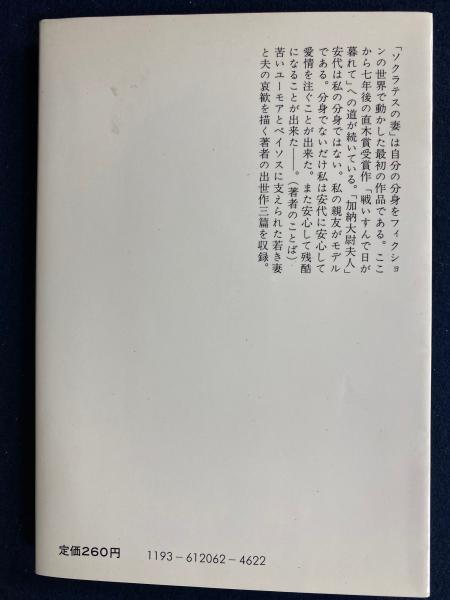 「ソクラテスの妻」は自分の分身をフィクショ
ンの世界で動かした最初の作品である。ここ
から七年後の直木賞受賞作「戦いすんで日が
暮れて」への道が続いている。「加納大尉夫人」
安代は私の分身ではない。私の親友がモデル
である。分身でないだけ私は安代に安心して
愛情を注ぐことが出来た。また安心して残酷
になることが出来た――。(著者のことば)
苦いユーモアとペイソスに支えられた若き妻
と夫の哀歓を描く著者の出世作三篇を収録。
定価260円
1193-612062-4622